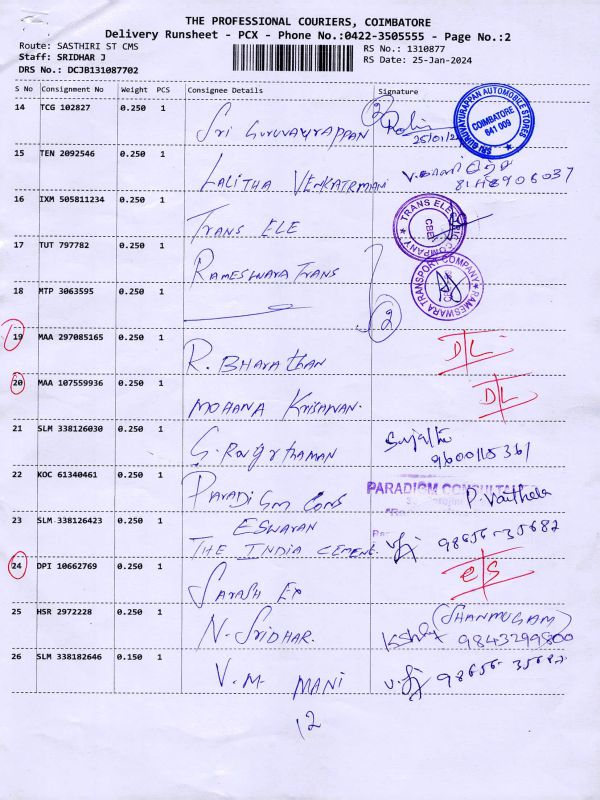 THE PROFESSIONAL COURIERS, COIMBATORE
Delivery Runsheet - PCX - Phone No.:0422-3505555 - Page No.:2
Route: SASTHIRI ST CMS
RS No.: 1310877
Staff: SRIDHAR J
RS Date: 25-Jan-2024
DRS No.: DCJB131087702
S No Consignment No Weight PCS Consignee Details Signature
14 TCG 102827 0.250 1
Sri Guruvayurappan 2
SRI GURUVAYURAPPAN AUTOMOBILE STORES
COIMBATORE
641 009
15 TEN 2092546 0.250 1
LALITHA VENKATRMANI
16 IXM 505811234 0.250 1
TRANS ELE
TRANS ELE
COMPANY
17 TUT 797782 0.250 1
RAMESWARA TRANS
RAMESWARA TRANSPORT COMPANY
18 MTP 3063595 0.250 1
2
19 MAA 297085165 0.250 1
R. BHARAThAN D/L
20 MAA 107559936 0.250 1
MOHANA KRISHNAN. D/L
21 SLM 338126030 0.250 1
22 KOC 61340461 0.250 1
PARADIGM CONS
PARADIGM CONSULTA
P. Vaithela
23 SLM 338126423 0.250 1
ESWARAN
THE INDIA CEMENT 98656-35682
24 DPI 10662769 0.250 1
e/s
25 HSR 2972228 0.250 1
N. SRIDHAR. (SHANMUGAM)
9843299800
26 SLM 338182646 0.150 1
V. M. MANI 98656-35682
12